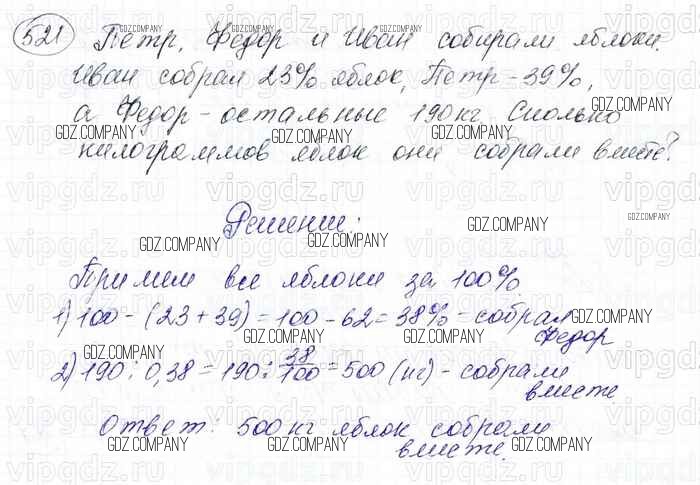 521 Петр, Федор и Иван собирали яблоки.
Иван собрал 23% яблок, Петр - 39%,
а Федор - остальные 190 кг. Сколько
килограммов яблок они собрали вместе?
Решение:
Примем все яблоки за 100%
1) 100 - (23 + 39) = 100 - 62 = 38% - собрал
Федор
2) 190 : 0,38 = 190 : 38/100 = 500 (кг) - собрали
вместе
Ответ: 500 кг яблок собрали
вместе.
GDZ.COMPANY
vipgdz.ru